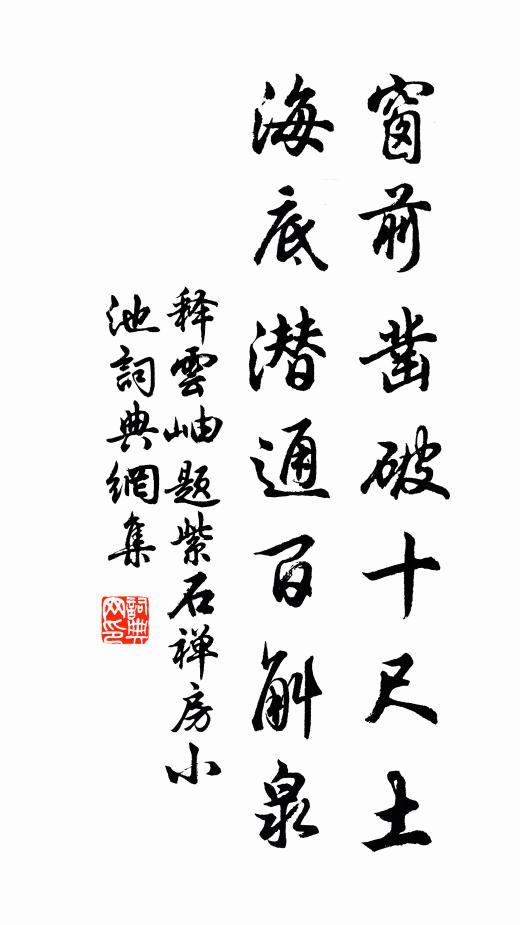 窗前凿破十尺土
海底潜通百斛泉
释雲岫题紫石禅房小
池詞典網集
詞典
网印